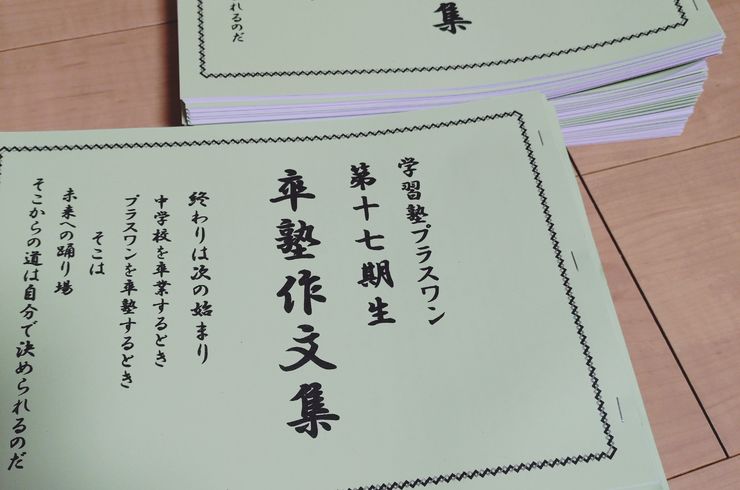 学習塾プラスワン
第十七期生
卒塾作文集
終わりは次の始まり
中学校を卒業するとき
プラスワンを卒塾するとき
そこは
未来への踊り場
そこからの道は自分で決められるのだ
集
れるのだ